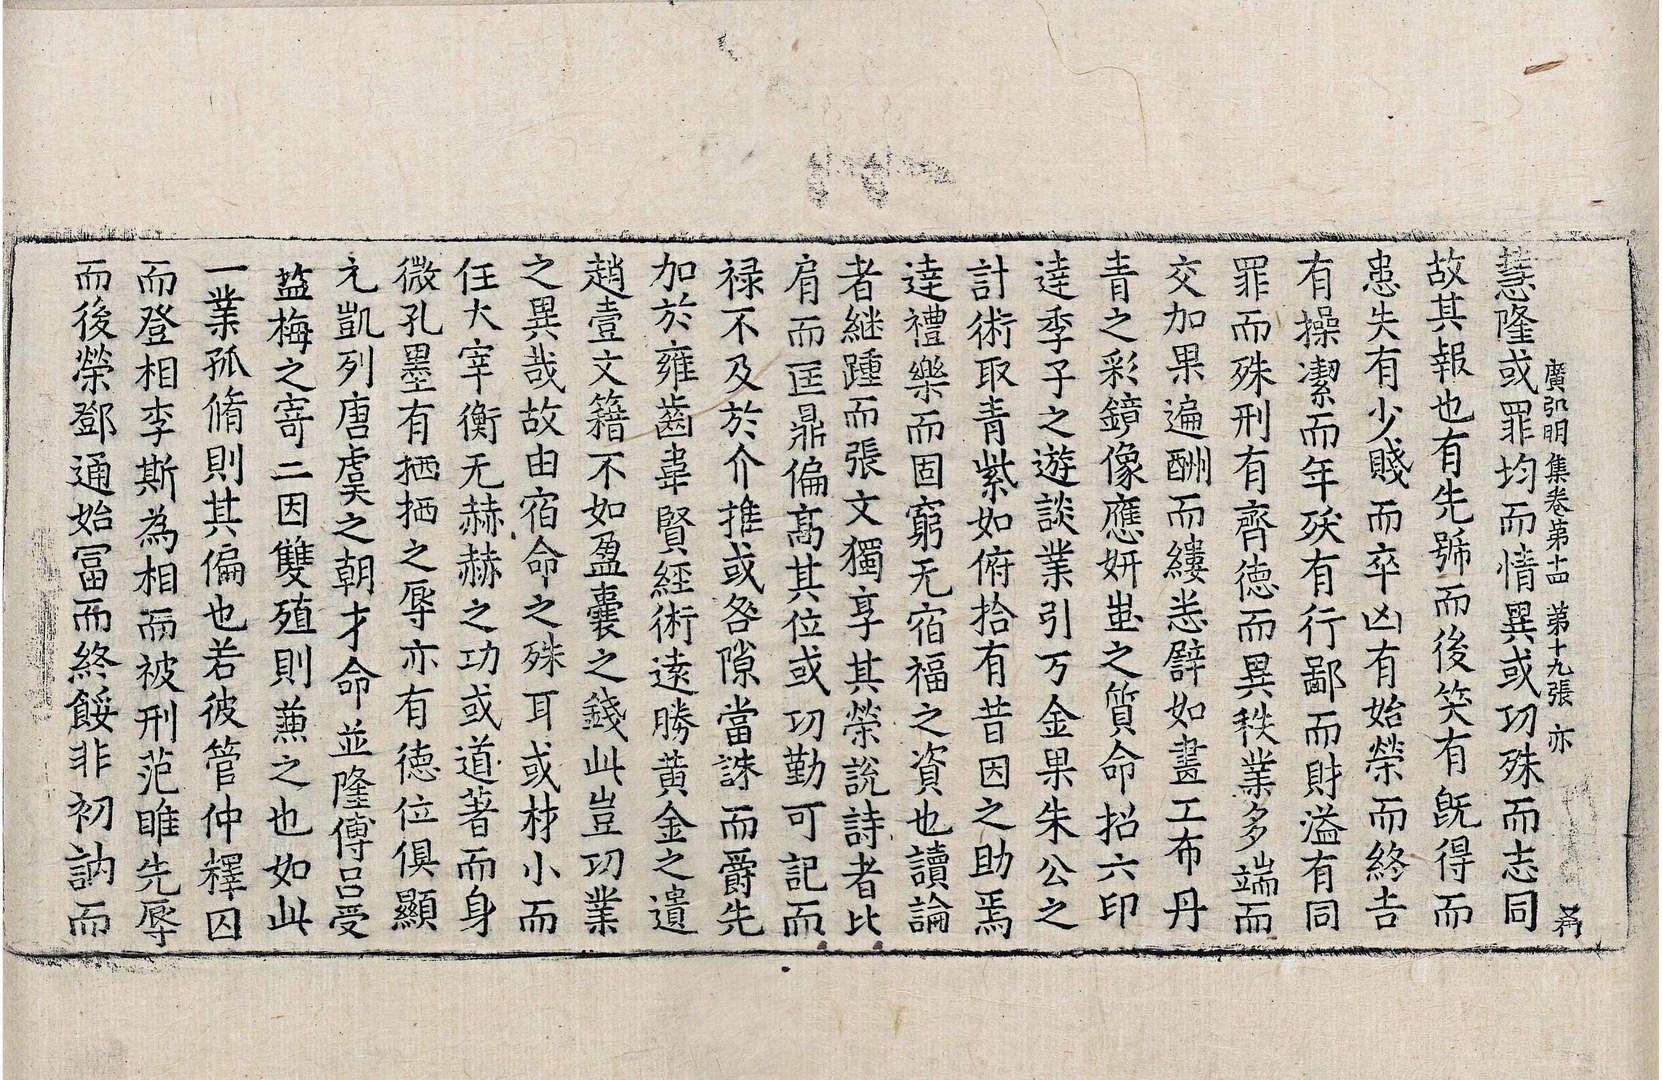 廣弘明集卷第十四 第十九張 亦
慧隆或罪均而情異或功殊而志同
故其報也有先號而後笑有既得而
患失有少賤而卒凶有始榮而終吉
有操潔而年殀有行鄙而財溢有同
罪而殊刑有齊德而異秩業多端而
交加果遍酬而縷悉譬如畫工布丹
青之彩鏡像應妍蚩之質命招六印
達季子之遊談業引万金果朱公之
計術取青紫如俯拾有昔因之助焉
達禮樂而固窮无宿福之資也讀論
者継踵而張文獨享其榮説詩者比
肩而匡鼎偏高其位或功勤可記而
禄不及於介推或咎隙當誅而爵先
加於雍齒韋賢經術遠勝黄金之遺
趙壹文籍不如盈囊之錢此豈功業
之異哉故由宿命之殊耳或材小而
任大宰衡无赫赫之功或道著而身
微孔墨有栖栖之辱亦有德位俱顯
元凱列唐虞之朝才命並隆傅吕受
盐梅之寄二因雙殖則兼之也如此
一業孤脩則其偏也若彼管仲釋囚
而登相李斯為相而被刑范雎先辱
而後榮鄧通始冨而終餒非初訥而